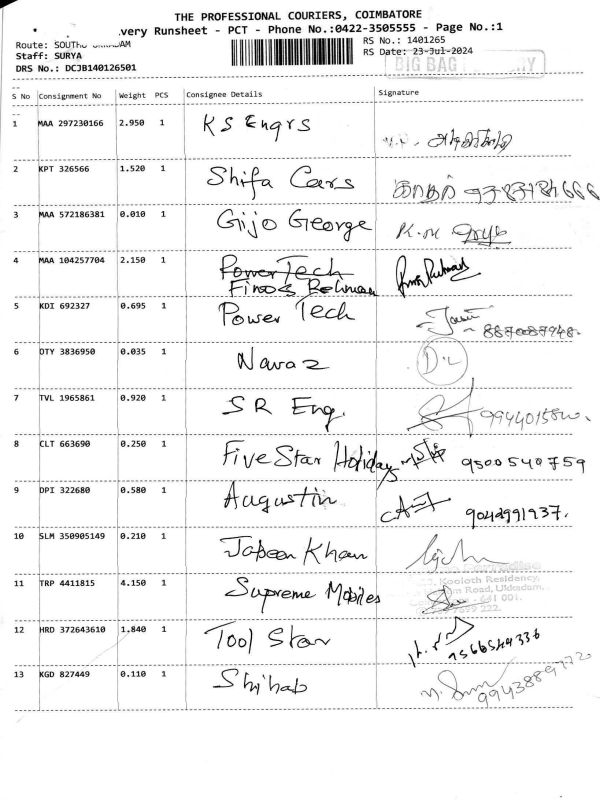 THE PROFESSIONAL COURIERS, COIMBATORE
very Runsheet - PCT - Phone No.:0422-3505555 - Page No.:1
Route: SOUTH
RS No.: 1401265
Staff: SURYA
RS Date: 23-Jul-2024
DRS No.: DCJB140126501
BIG BAG
S No Consignment No Weight PCS Consignee Details Signature
1 MAA 297230166 2.950 1 KS Engrs
2 KPT 326566 1.520 1 Shifa Cars
3 MAA 572186381 0.010 1 Gijo George K.M
4 MAA 104257704 2.150 1 Power Tech
Firoos Rehman
5 KDI 692327 0.695 1 Power Tech
8870087948
6 OTY 3836950 0.035 1 Navaz
7 TVL 1965861 0.920 1 S R Eng.
8 CLT 663690 0.250 1 Five Star Holiday 9500540759
9 DPI 322680 0.580 1 Augustin
9042991937.
10 SLM 350905149 0.210 1 Jabeer Khan
Kooloth Residency,
11 TRP 4411815 4.150 1 Supreme Mobiles Road, Ukkadam,
641 001.
12 HRD 372643610 1.840 1 Tool Star
13 KGD 827449 0.110 1 Shihab